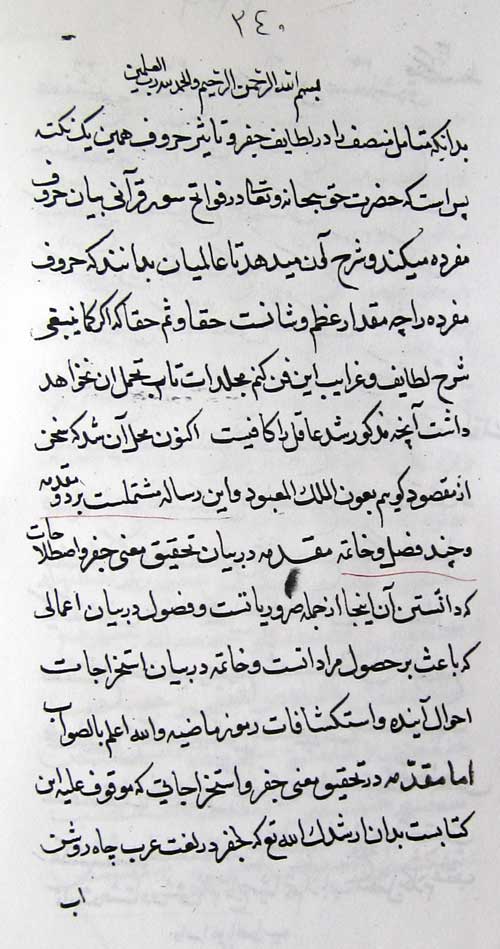 ۲٤۰
بسم الله الرحمن الرحیم والحمد لله رب العلمین
بدانکه متامل منصف را در لطایف جفر و تاثیر حروف همین یک نکته
پس است که حضرت حق سبحانه و تعالی در فواتح سور قرآنی بیان حروف
مفرده میکند و شرح آن میدهد تا عالمیان بدانند که حروف
مفرده را چه مقدار عظم و شانست حقا و ثم حقا که اگر کما ینبغی
شرح لطایف و غرایب این فن کنم مجلدات تاب تحمل ان نخواهد
داشت آنچه مذکور شد عاقل را کافیست اکنون محل آن شد که سخن
از مقصود کویم بعون الملک المعبود و این رساله مشتملست بر دو مقدمه
و چند فصل و خاتمه مقدمه در بیان تحقیق معنی جفر و اصطلاحات
که دانستن آن اینجا از جمله ضروریاتست و فصول در بیان اعمالی
که باعث بر حصول مراداتست و خاتمه در بیان استخراجات
احوال آینده و استکشافات رموز ماضیه والله اعلم بالصواب
اما مقدمه در تحقیق معنی جفر و استخراجاتی که موقوف علیه این
کتابست بدان ارشدک الله تع که جفر در لغت عرب چاه روشن
اب